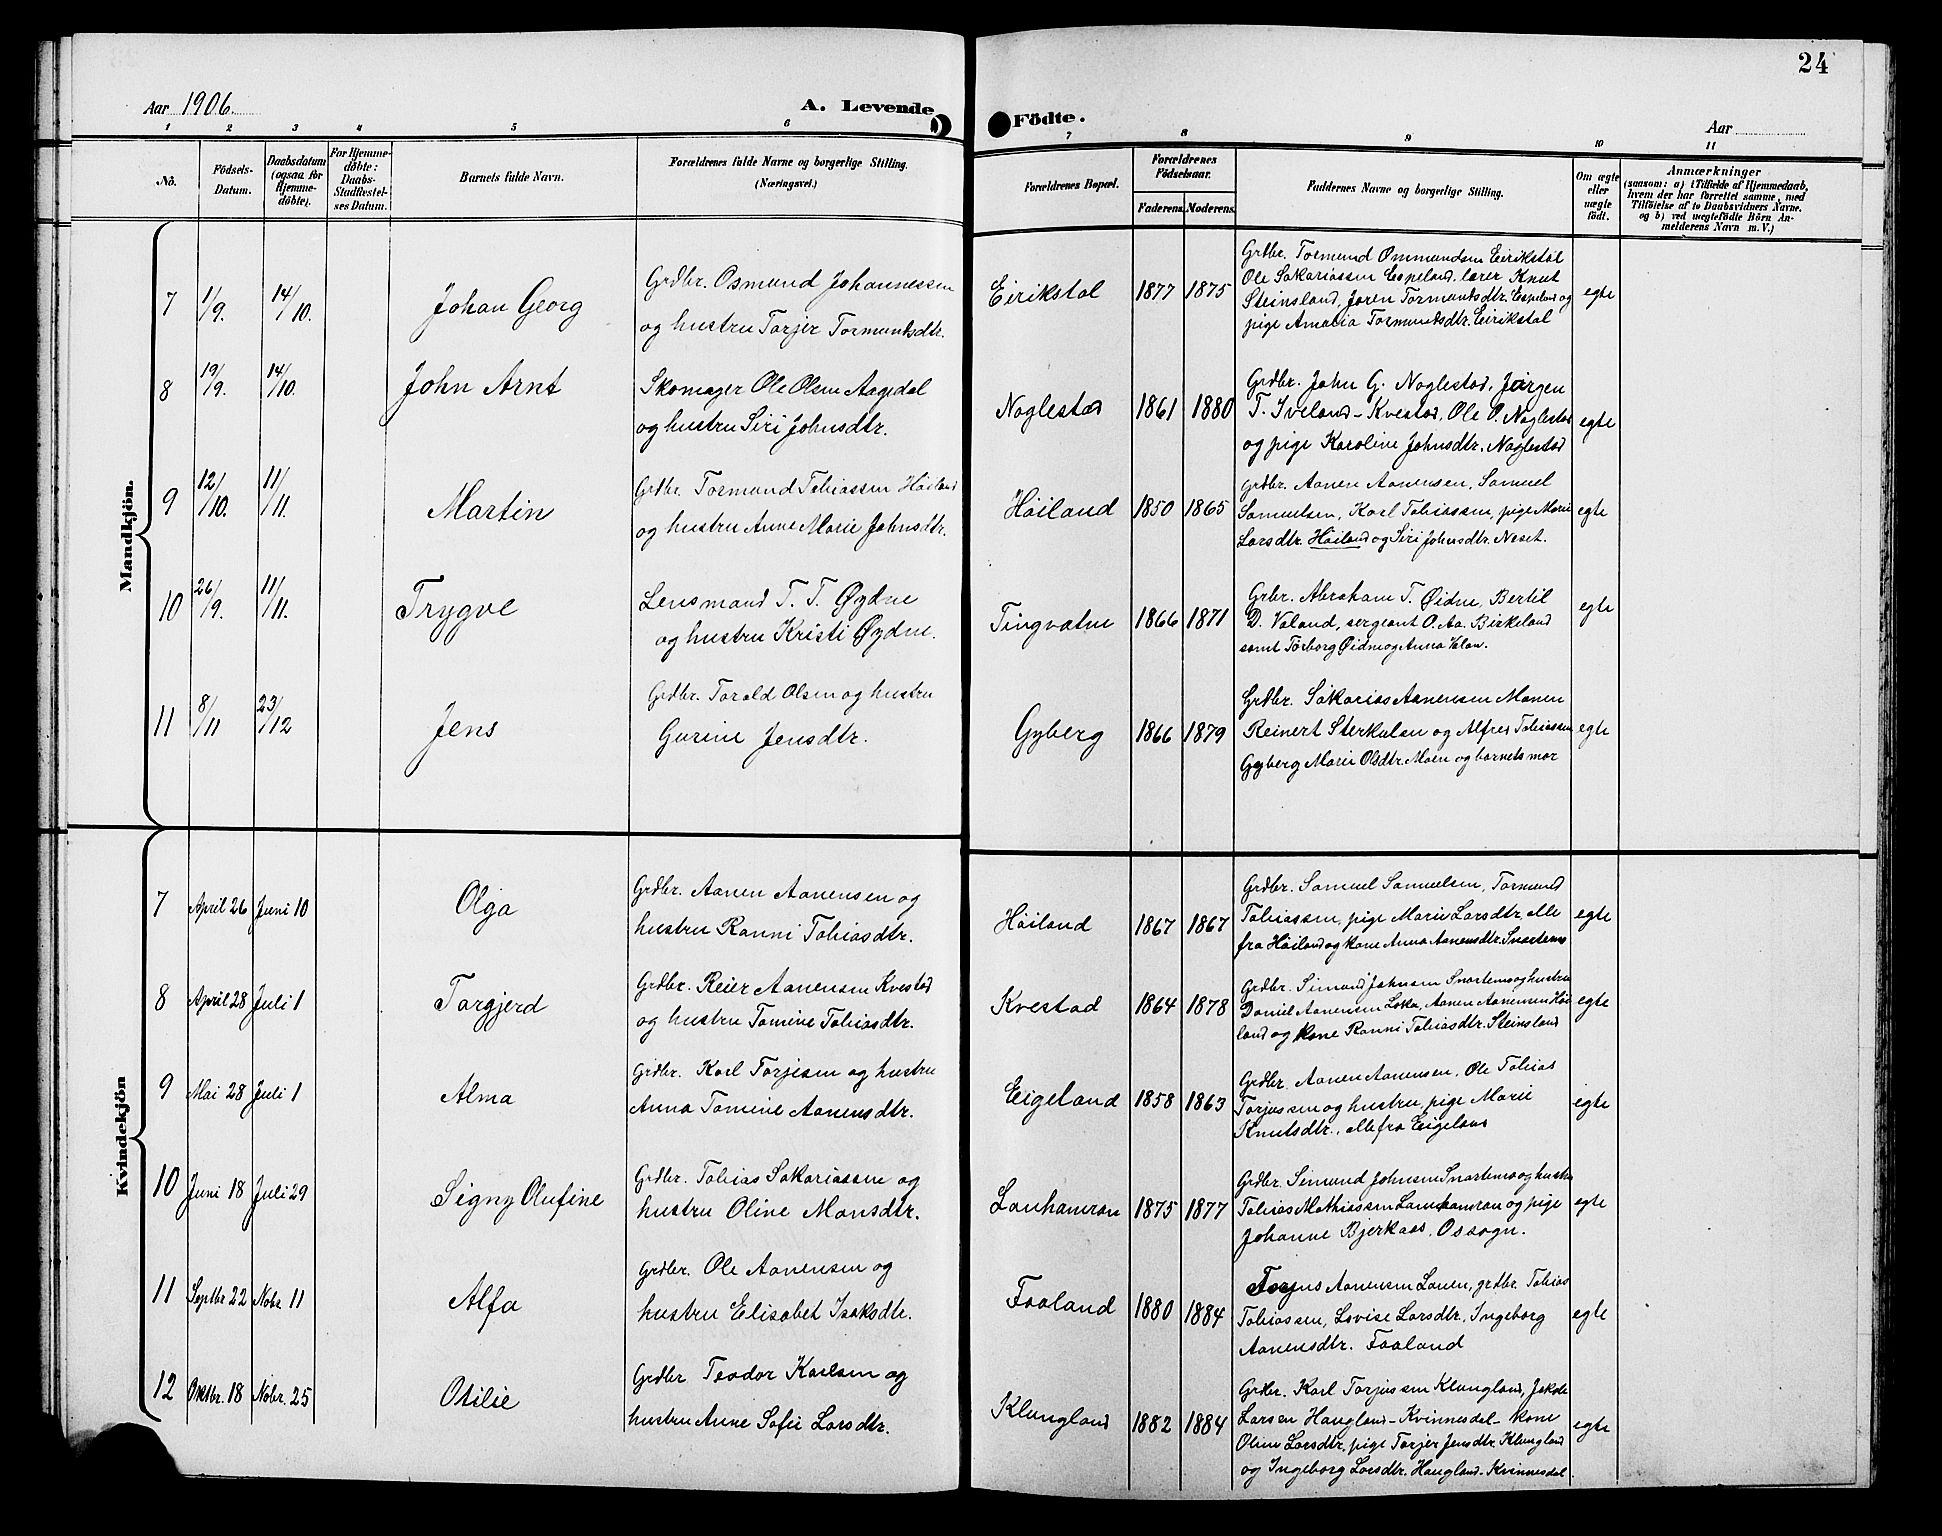 24
Aar 1906.
A. Levende Födte.
Aar
1 2 3 4 5 6 7 8 9 10 11
No.
Födsels-Datum.
Daabsdatum (ogsaa for Hjemmedöbte).
For Hjemmedöbte: Daabs-Stadfæstelses Datum.
Barnets fulde Navn.
Forældrenes fulde Navne og borgerlige Stilling.
(Næringsvei.)
Forældrenes Bopæl.
Forældrenes Födselsaar.
Faderens. Moderens.
Faddernes Navne og borgerlige Stilling.
Om ægte eller uægte födt.
Anmærkninger
(saasom: a) i Tilfælde af Hjemmedaab, hvem der har forrettet samme, med Tilföielse af to Daabsvidners Navne. og b) ved uægtefödte Börn Anmelderens Navn m. V.)
Mandkjön.
7 1/9. 14/10. Johan Georg
Grdbr. Osmund Johannessen
og hustru Torjer Tormundsdtr.
Eirikstøl 1877 1875
Grdbr. Tormund Ommundsen Eirikstøl
Ole Sakariassen Espeland, lærer Knut
Steinsland, Joren Tormundsdtr. Espeland og
pige Amalia Tormundsdtr. Eirikstøl
egte
8 19/9. 14/10. John Arnt
Skomager Ole Olsen Aagedal
og hustru Siri Johnsdtr.
Noglestad 1861 1880
Grdbr. John G. Noglestad, Jørgen
T. Iveland-Kvestad, Ole O. Noglestad
og pige Karoline Johnsdtr. Noglestad
egte
9 12/10. 11/11. Martin
Grdbr. Tormund Tobiassen Høiland
og hustru Anne Marie Johnsdtr.
Høiland 1850 1865
Grdbr. Aanen Aanensen, Samuel
Samuelsen, Karl Tobiassen, pige Marie
Larsdtr. Høiland og Siri Johnsdtr. Neset.
egte
10 26/9. 11/11. Trygve
Lensmand T. T. Øydne
og hustru Kristi Øydne.
Tingvatne 1866 1871
Grbr. Abraham T. Øidne, Bertil
D. Valand, sergeant O. Aa. Birkeland
samt Torborg Øidne og Anna Valan.
egte
11 8/11 23/12 Jens
Grdbr. Torald Olsen og hustru
Gurine Jensdtr.
Gyberg 1866 1879
Grdbr. Sakarias Aanensen Moen
Reinert Sterkelsen og Alfred Tobiassen
Gyberg Marie Olsdtr. Moen og barnets mor
egte
Kvindekjön
7 April 26 Juni 10 Olga
Grdbr. Aanen Aanensen og
hustru Ranni Tobiasdtr.
Høiland 1867 1867
Grdbr. Samuel Samuelsen, Tormund
Tobiassen, pige Marie Larsdtr, alle
fra Høiland og kone Anna Aanensdtr. Snartemo
egte
8 April 28 Juli 1 Torgjerd
Grdbr. Reier Aanensen Kvestad
og hustru Tomine Tobiasdtr.
Kvestad 1864 1878
Grdbr. Simund Johnsen Snartemo og hustru
Daniel Aanensen Loka, Aanen Aanensen Høi
land og kone Ranni Tobiasdtr. Steinsland
egte
9 Mai 28 Juli 1 Alma
Grdbr. Karl Torjisen og hustru
Anna Tomine Aanensdtr.
Eigeland 1858 1863
Grdbr. Aanen Aanensen, Ole Tobias
Torjussen og hustru, pige Marie
Knutsdtr., alle fra Eigeland
egte
10 Juni 18 Juli 29 Signy Olufine
Grdbr. Tobias Sakariassen og
hustru Oline Monsdtr.
Lauhamran 1875 1877
Grdbr. Simund Johnsen Snartemo og hustru
Tobias Mathiassen Lauhamran og pige
Johanne Bjerkaas, Ossogn.
egte
11 Septbr 22 Nobr. 11 Alfa
Grdbr. Ole Aanensen og
hustru Elisabet Isaksdtr.
Faaland 1880 1884
Torjus Aanensen Lauen, grdbr. Tobias
Tobiassen, Lovise Larsdtr, Ingeborg
Aanensdtr. Faaland
egte
12 Oktbr. 18 Nobr. 25 Otilie
Grdbr Teodor Karlsen og
hustru Anne Sofie Larsdtr.
Klungland 1882 1884
Grdbr. Karl Torjussen Klungland, Jakob
Larsen Haugland-Kvinnesdal- kone
Oline Larsdtr, pige Torjer Jensdtr. Klungland
og Ingeborg Larsdtr. Haugland-Kvinnesdal.
egte